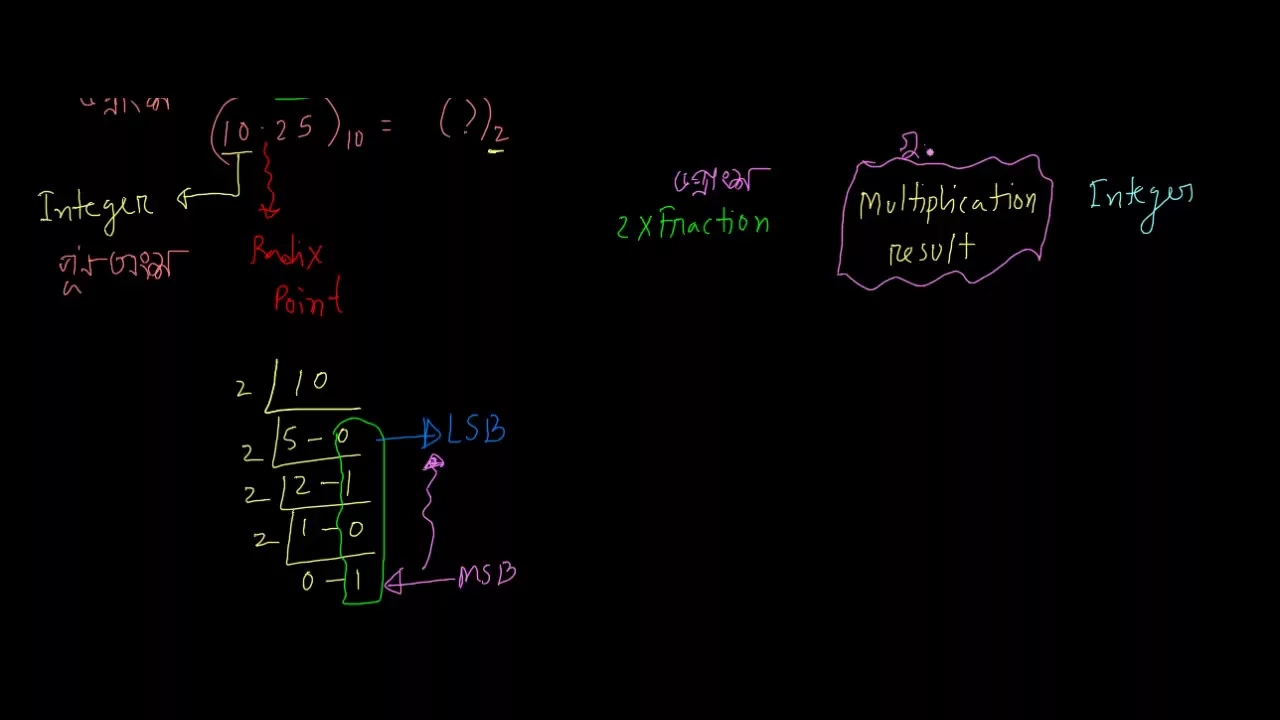 (10.25)10 = (?)2
Integer
Radix
Point
2 10
2 5 - 0
LSB
2 2 - 1
2 1 - 0
0 - 1
MSB
2 x Fraction
Multiplication
result
Integer